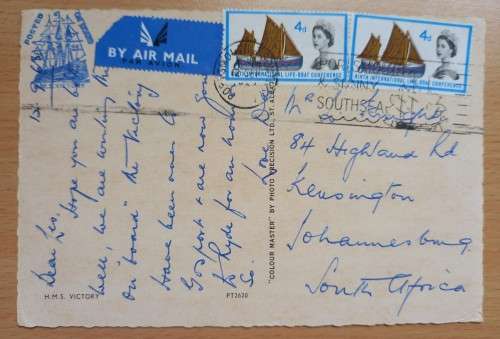 POSTED
BY AIR MAIL
PAR AVION
4d
NINTH INTERNATIONAL LIFE-BOAT CONFERENCE
4d
NINTH INTERNATIONAL LIFE-BOAT CONFERENCE
SUNNY
SOUTHSEA
Dear Les,
Hope you are
well, we are working the
on "board" the Victory
have been over to
Gosport & are now going
to Ryde for an hour or
so.
Love
84 Highland Rd
Kensington
Johannesburg
South Africa
"COLOUR MASTER" BY PHOTO PRECISION LTD., ST. ALBANS
H.M.S. VICTORY
PT2620